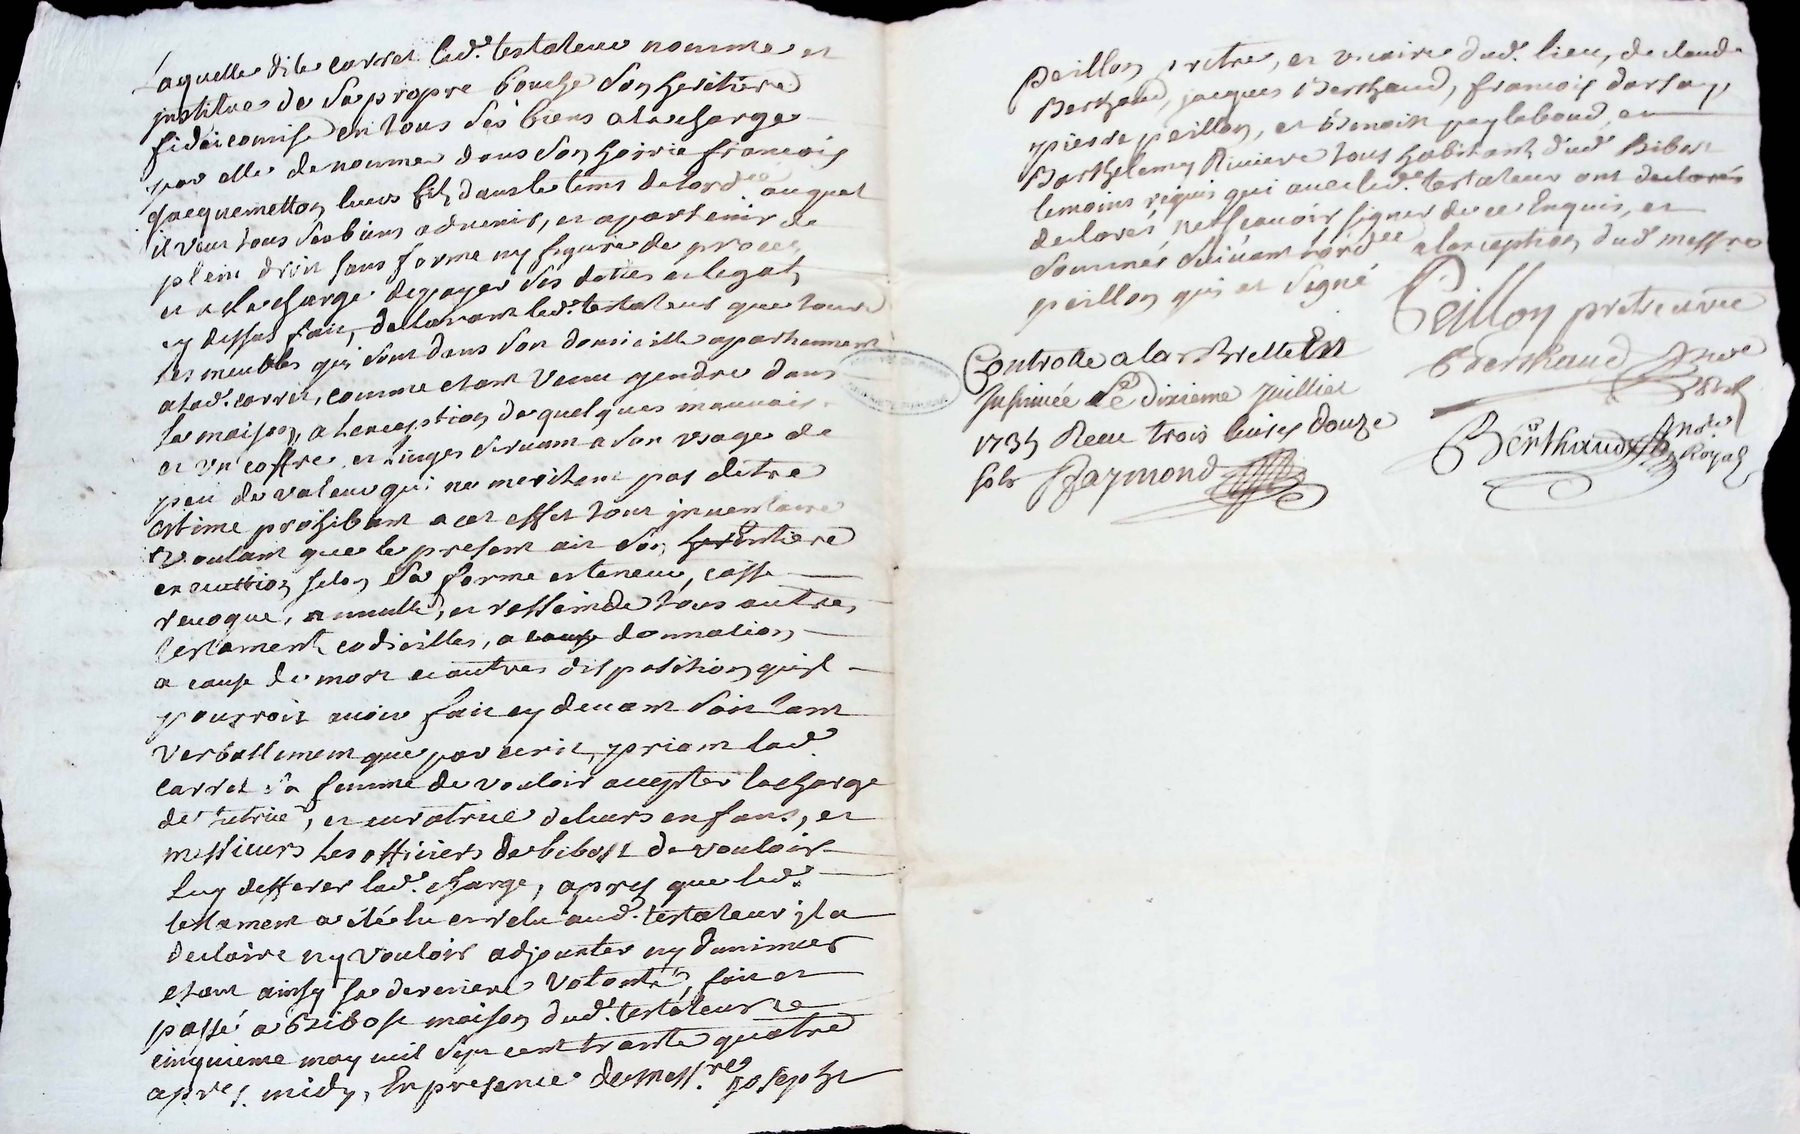 Laquelle dite carret led. testateur nomme et
institue de sa propre bouche son heritiere
fideicomise en tous ses biens a la charge
par elle de nommer dans son hoirie francois
Jacquemetton leurs fils dans le tems de lord.ce auquel
il veut tous ses biens advenir, et apartenir de
plein droit sans forme ny figure de proces
et a la charge de payer ses dettes et legats
cy dessus fait, declarant led. testateur que tous
les meubles qui sont dans son domicille apartiennent
a lad. carret, comme etant venu gendre dans
sa maison, a lexception de quelques mauvais
et un coffre et linges servant a son usage de
peu de valeur qui ne meritent pas detre
estime prohibant a cet effet tout inventaire
voulant que le present ait son entiere
execution selon sa forme et teneur, casse
revoque, annulle, et resseinde tous autres
testament codicilles, a cause donnation
a cause de mort et autres disposition quil
pourroit avoir fait cy devant soit tant
verballement que par ecrit, priant lad.
carret sa femme de vouloir accepter la charge
de tutrice, et curatrice de leurs enfans, et
messieurs les officiers de bibost de vouloir
luy defferer lad. charge, apres que led.
testament a été lu et relu aud. testateur il a
declaire ny vouloir adjouter ny diminuer
etant ainsy sa derniere volonté, fait et
passé a Bibost maison dud. testateur le
cinquieme may mil sept cent trante quatre
apres midy, En presence de Mess.re Joseph
Peillon pretre, et vicaire dud. lieu, de claude
Berthaud, jacques Berthaud, francois dorfay
pierre peillon, et Benoist peylaboud, et
Barthelemy Riviere tous habitant dud. Bibost
temoins requis qui avec led. testateur ont declarés
declarés ne scavoir signer de ce Enquis, et
sommés suivant lord.ce a lexception dud. messre
peillon qui et signé
Peillon pretre vicaire
Berthaud
Controlle a la Bresle Et
Insinuée Le dixieme juillet
1734 Receu trois livres douze
sols Raymond
Berthaud No.re Royal